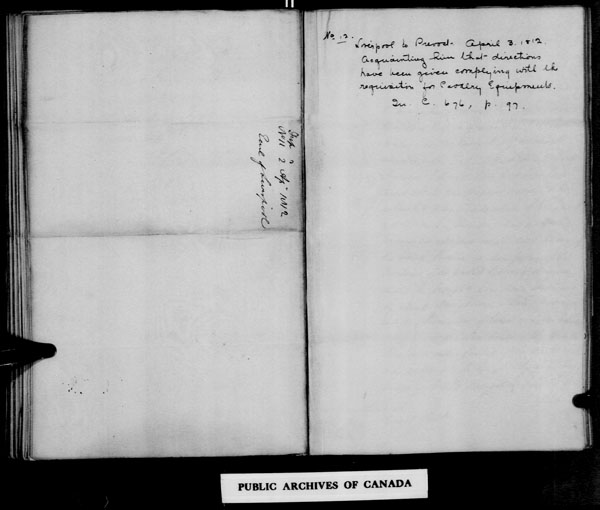 No 11 2 Ap 1812
Earl of Liverpool
No. 12.
Liverpool to Prevost. April 3. 1812
Acquainting him that directions
have been given complying with the
requisition for Cavalry Equipments.
In C. 676, p. 97.
PUBLIC ARCHIVES OF CANADA